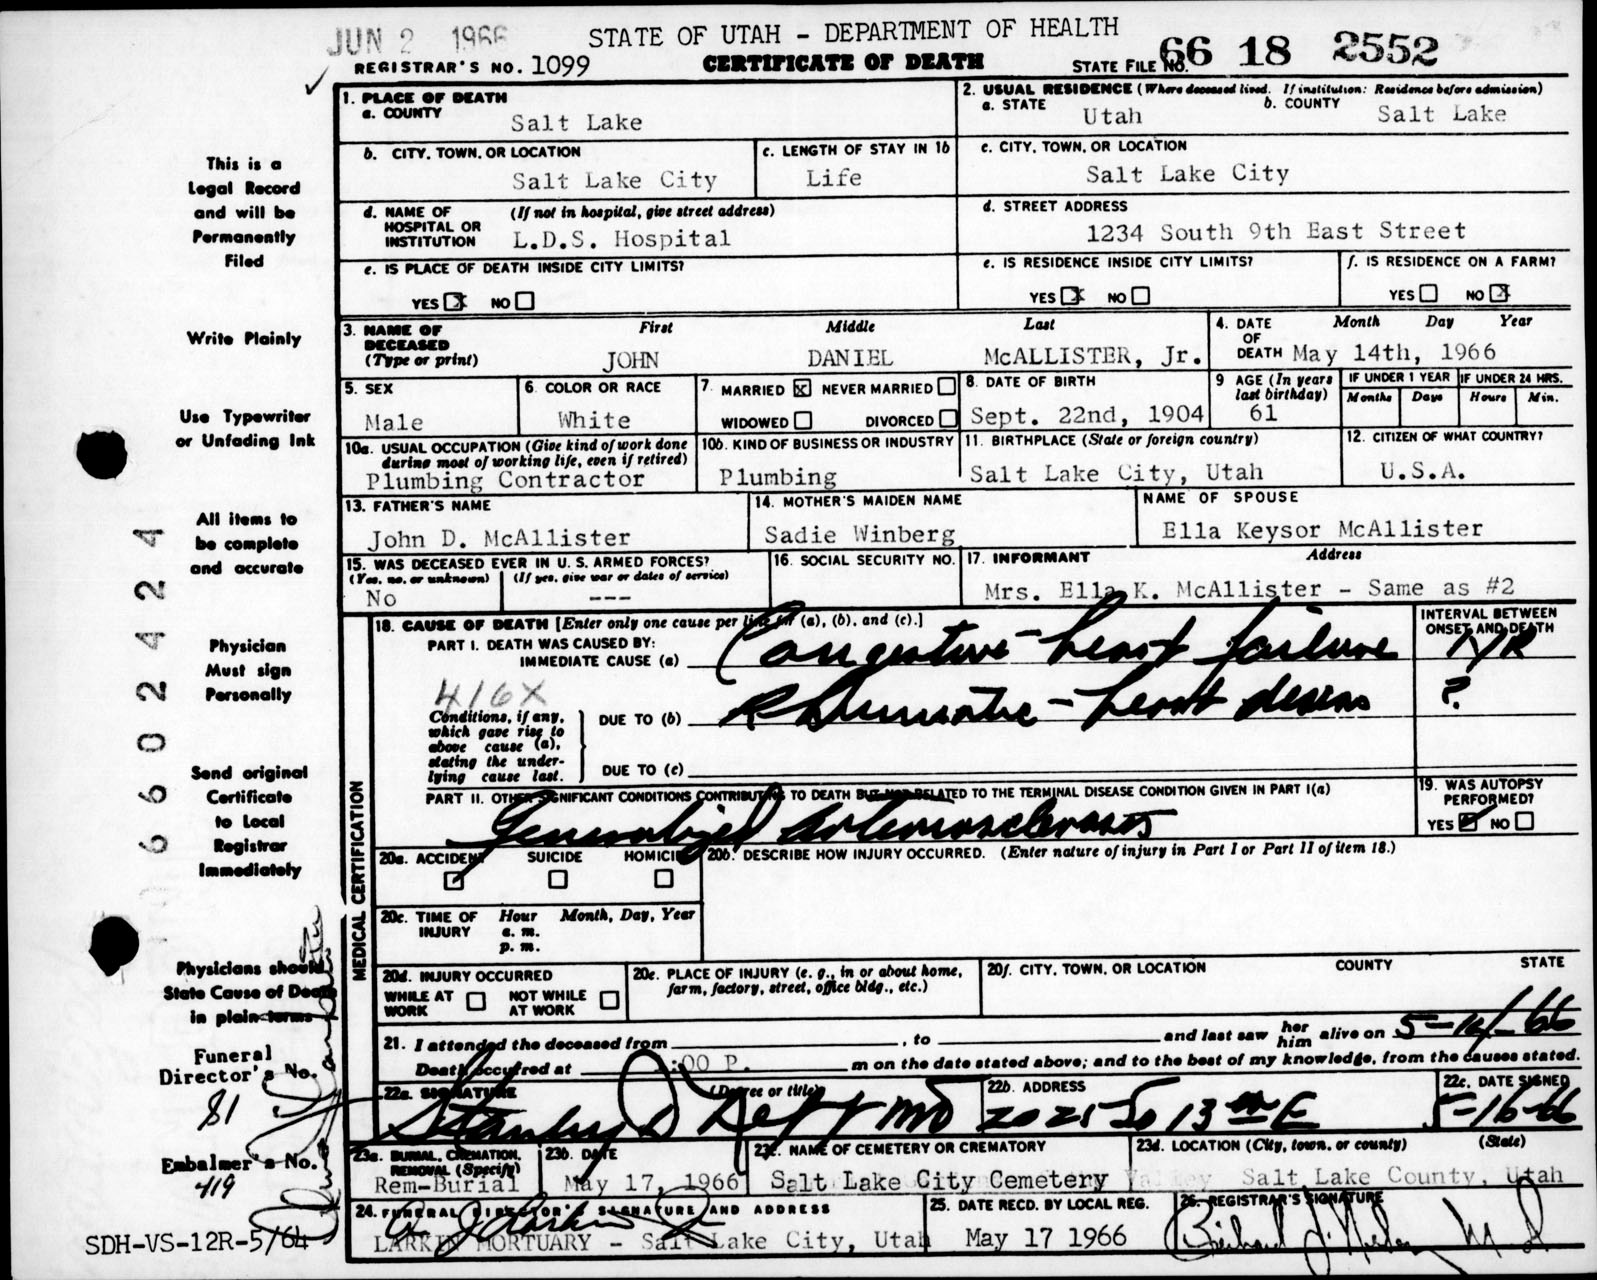 JUN 2 1966
STATE OF UTAH - DEPARTMENT OF HEALTH
REGISTRAR'S NO. 1099
CERTIFICATE OF DEATH
STATE FILE NO. 66 18 2552
This is a
Legal Record
and will be
Permanently
Filed
Write Plainly
Use Typewriter
or Unfading Ink
All items to
be complete
and accurate
Physician
Must sign
Personally
Send original
Certificate
to Local
Registrar
Immediately
Physicians should
State Cause of Death
in plain terms
Funeral
Director's No.
81
Embalmer's No.
419
SDH-VS-12R-5/64
660242424
1. PLACE OF DEATH
a. COUNTY
Salt Lake
2. USUAL RESIDENCE (Where deceased lived. If institution: Residence before admission)
a. STATE Utah
b. COUNTY Salt Lake
b. CITY, TOWN, OR LOCATION
Salt Lake City
c. LENGTH OF STAY IN 1b
Life
c. CITY, TOWN, OR LOCATION
Salt Lake City
d. NAME OF HOSPITAL OR INSTITUTION (If not in hospital, give street address)
L.D.S. Hospital
d. STREET ADDRESS
1234 South 9th East Street
e. IS PLACE OF DEATH INSIDE CITY LIMITS?
YES X NO
e. IS RESIDENCE INSIDE CITY LIMITS?
YES X NO
f. IS RESIDENCE ON A FARM?
YES NO X
3. NAME OF DECEASED (Type or print)
First Middle Last
JOHN DANIEL McALLISTER, Jr.
4. DATE OF DEATH Month Day Year
May 14th, 1966
5. SEX
Male
6. COLOR OR RACE
White
7. MARRIED X NEVER MARRIED
WIDOWED DIVORCED
8. DATE OF BIRTH
Sept. 22nd, 1904
9 AGE (In years last birthday)
61
IF UNDER 1 YEAR
Months Days
IF UNDER 24 HRS.
Hours Min.
10a. USUAL OCCUPATION (Give kind of work done during most of working life, even if retired)
Plumbing Contractor
10b. KIND OF BUSINESS OR INDUSTRY
Plumbing
11. BIRTHPLACE (State or foreign country)
Salt Lake City, Utah
12. CITIZEN OF WHAT COUNTRY?
U.S.A.
13. FATHER'S NAME
John D. McAllister
14. MOTHER'S MAIDEN NAME
Sadie Winberg
NAME OF SPOUSE
Ella Keysor McAllister
15. WAS DECEASED EVER IN U. S. ARMED FORCES?
(Yes, no, or unknown) (If yes, give war or dates of service)
No ---
16. SOCIAL SECURITY NO.
17. INFORMANT Address
Mrs. Ella K. McAllister - Same as #2
MEDICAL CERTIFICATION
18. CAUSE OF DEATH [Enter only one cause per line for (a), (b), and (c).]
INTERVAL BETWEEN ONSET AND DEATH
PART I. DEATH WAS CAUSED BY:
IMMEDIATE CAUSE (a) Congestive - heart failure 1 yR
416X
Conditions, if any, which gave rise to above cause (a), stating the underlying cause last.
DUE TO (b) Rheumatic - heart disease ?
DUE TO (c)
PART II. OTHER SIGNIFICANT CONDITIONS CONTRIBUTING TO DEATH BUT NOT RELATED TO THE TERMINAL DISEASE CONDITION GIVEN IN PART I(a)
Generalized arteriosclerosis
19. WAS AUTOPSY PERFORMED?
YES NO
20a. ACCIDENT SUICIDE HOMICIDE
20b. DESCRIBE HOW INJURY OCCURRED. (Enter nature of injury in Part I or Part II of item 18.)
20c. TIME OF INJURY Hour Month, Day, Year
a. m.
p. m.
20d. INJURY OCCURRED
WHILE AT WORK NOT WHILE AT WORK
20e. PLACE OF INJURY (e. g., in or about home, farm, factory, street, office bldg., etc.)
20f. CITY, TOWN, OR LOCATION COUNTY STATE
21. I attended the deceased from , to and last saw her him alive on 5-14-66
Death occurred at :00 P. m on the date stated above; and to the best of my knowledge, from the causes stated.
22a. SIGNATURE (Degree or title)
Stanley MD
22b. ADDRESS
2025 So 13th E
22c. DATE SIGNED
5-16-66
23a. BURIAL, CREMATION, REMOVAL (Specify)
Rem-Burial
23b. DATE
May 17, 1966
23c. NAME OF CEMETERY OR CREMATORY
Salt Lake City Cemetery
23d. LOCATION (City, town, or county) (State)
Salt Lake County, Utah
24. FUNERAL DIRECTOR'S SIGNATURE AND ADDRESS
LARKIN MORTUARY - Salt Lake City, Utah
25. DATE RECD. BY LOCAL REG.
May 17 1966
26. REGISTRAR'S SIGNATURE